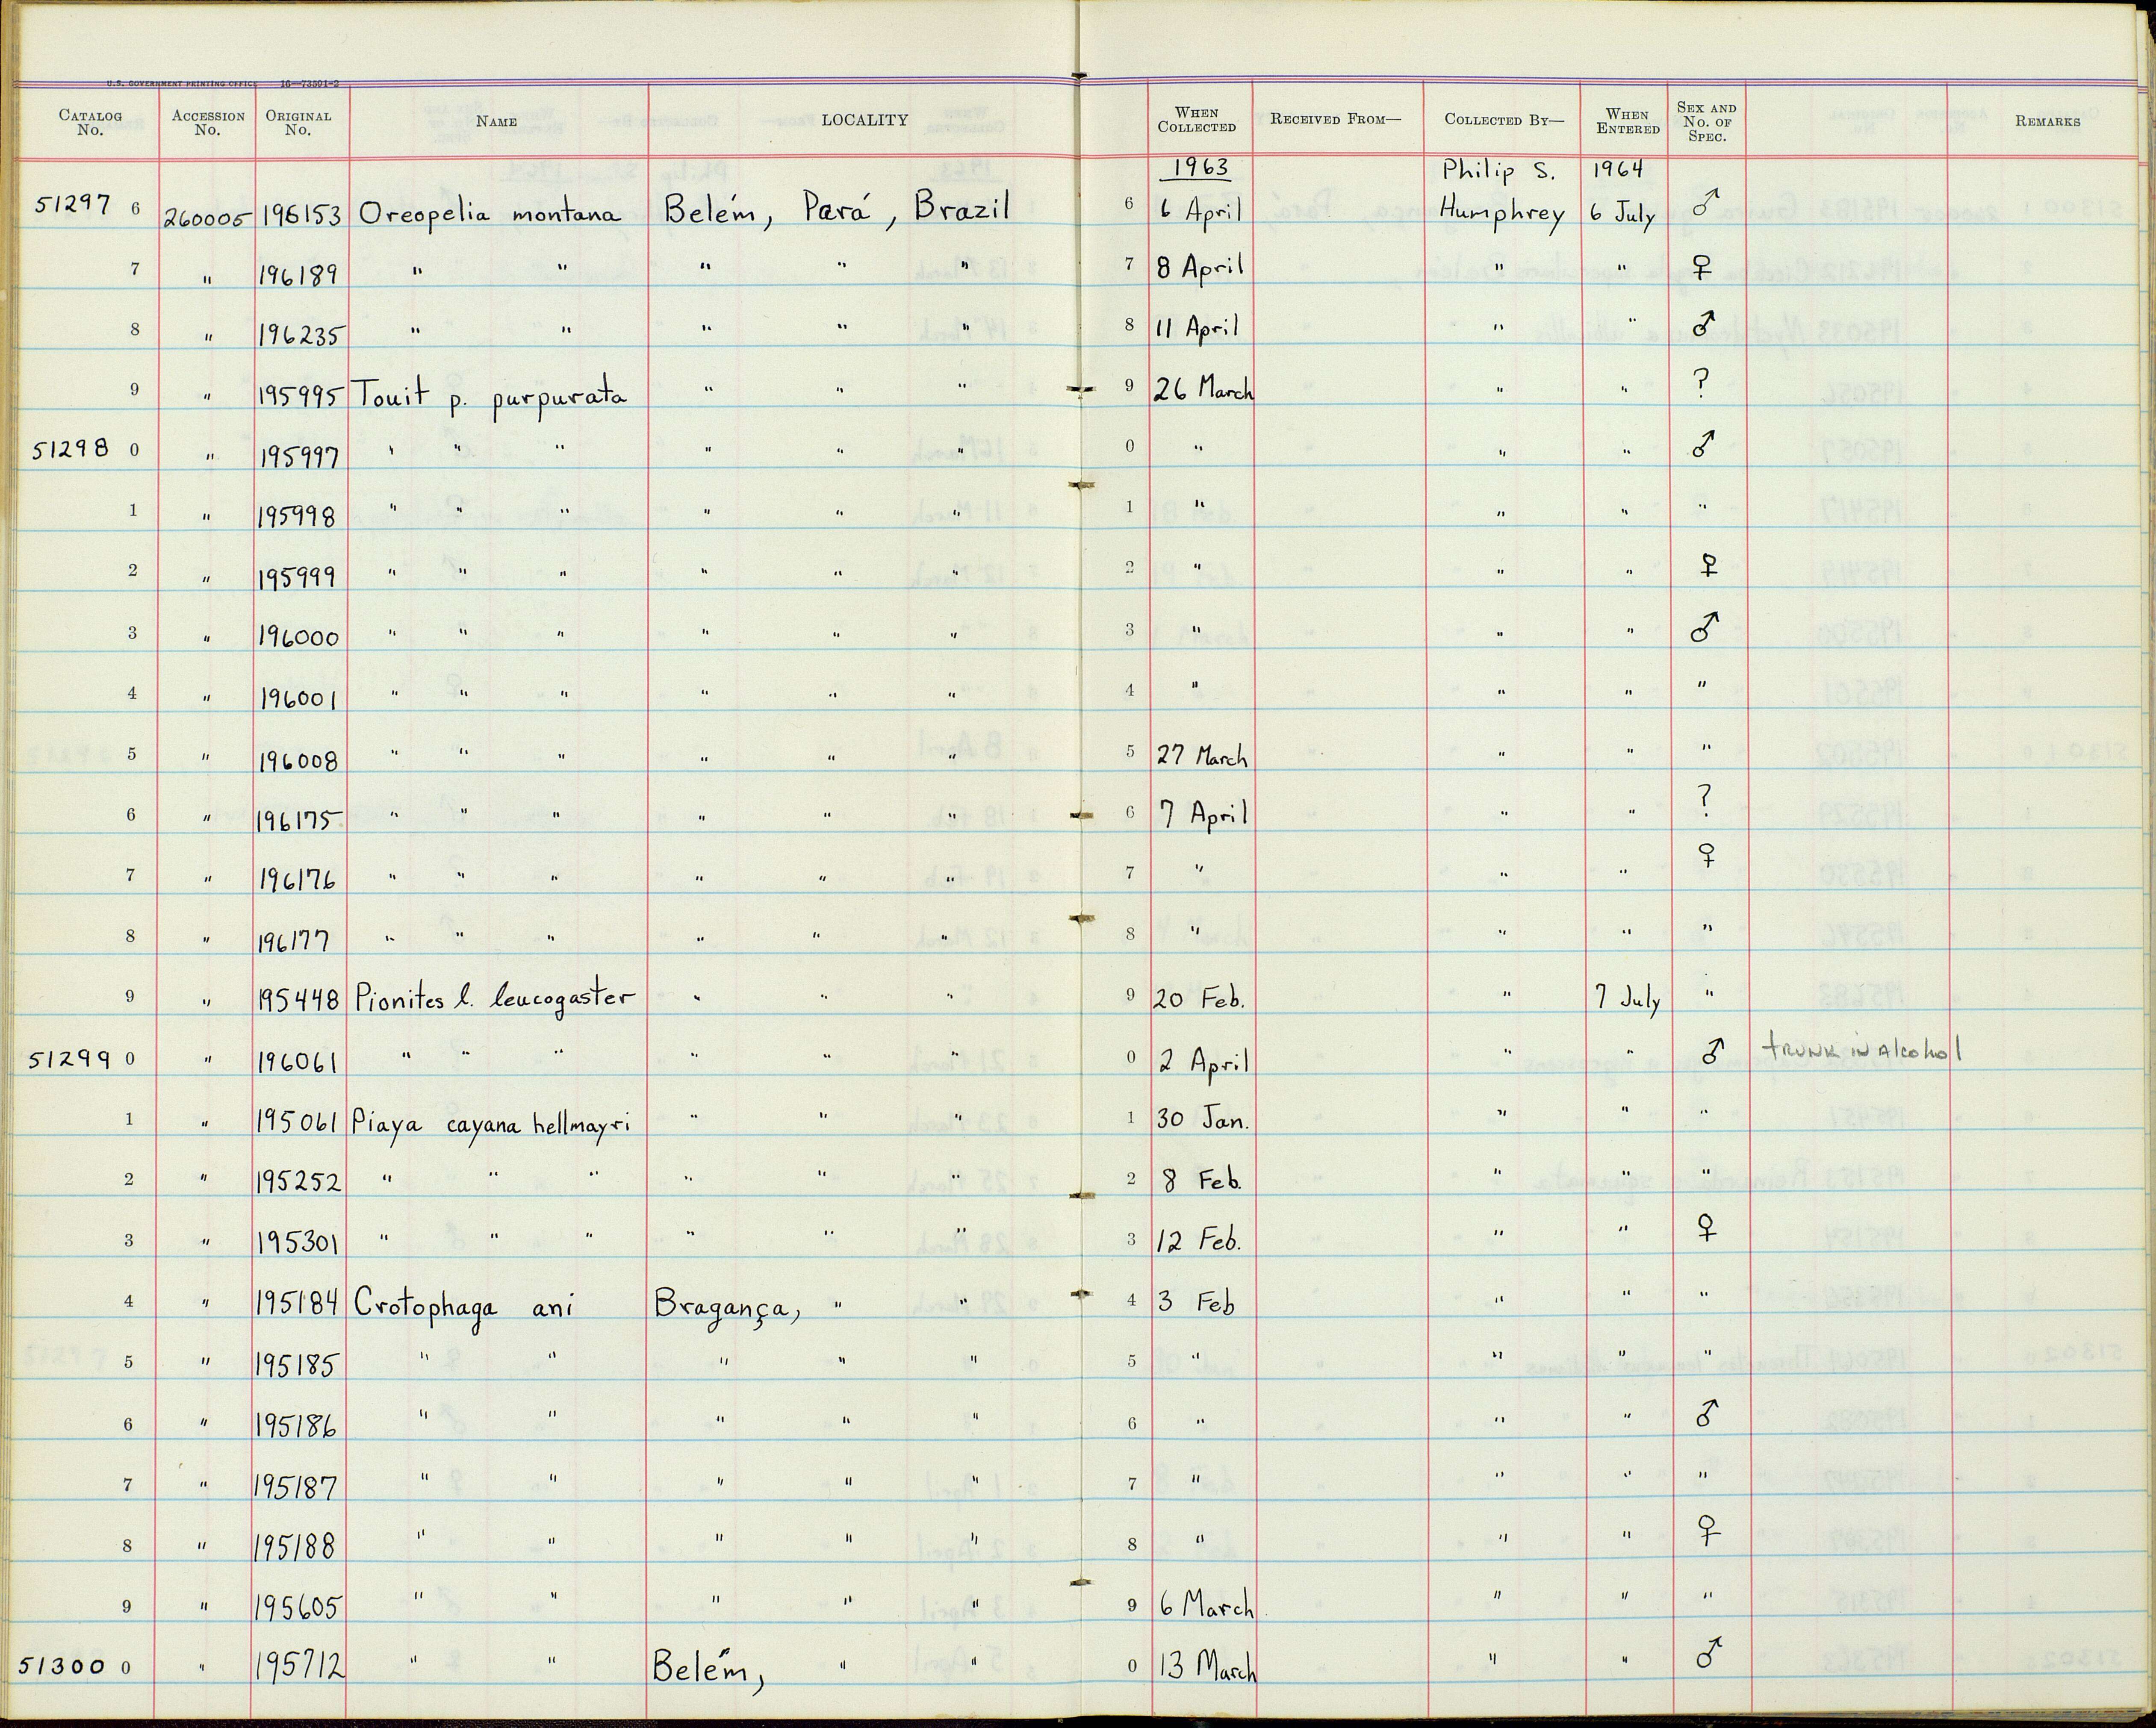 U.S. GOVERNMENT PRINTING OFFICE 16—73591-2
CATALOG No. ACCESSION No. ORIGINAL No. NAME LOCALITY WHEN COLLECTED RECEIVED FROM— COLLECTED BY— WHEN ENTERED SEX AND No. OF SPEC. REMARKS
1963 Philip S. 1964
51297 6 260005 196153 Oreopelia montana Belém, Pará, Brazil 6 6 April Humphrey 6 July ♂
7 " 196189 " " " " " 7 8 April " " ♀
8 " 196235 " " " " " 8 11 April " " ♂
9 " 195995 Touit p. purpurata " " " 9 26 March " " ?
51298 0 " 195997 " " " " " " 0 " " " ♂
1 " 195998 " " " " " " 1 " " " "
2 " 195999 " " " " " " 2 " " " ♀
3 " 196000 " " " " " " 3 " " " ♂
4 " 196001 " " " " " " 4 " " " "
5 " 196008 " " " " " " 5 27 March " " "
6 " 196175 " " " " " " 6 7 April " " ?
7 " 196176 " " " " " " 7 " " " ♀
8 " 196177 " " " " " " 8 " " " "
9 " 195448 Pionites l. leucogaster " " " 9 20 Feb. " 7 July "
51299 0 " 196061 " " " " " " 0 2 April " " ♂ trunk in alcohol
1 " 195061 Piaya cayana hellmayri " " " 1 30 Jan. " " "
2 " 195252 " " " " " " 2 8 Feb. " " "
3 " 195301 " " " " " " 3 12 Feb. " " ♀
4 " 195184 Crotophaga ani Bragança, " " 4 3 Feb " " "
5 " 195185 " " " " " 5 " " " "
6 " 195186 " " " " " 6 " " " ♂
7 " 195187 " " " " " 7 " " " "
8 " 195188 " " " " " 8 " " " ♀
9 " 195605 " " " " " 9 6 March " " "
51300 0 " 195712 " " Belém, " " 0 13 March " " ♂